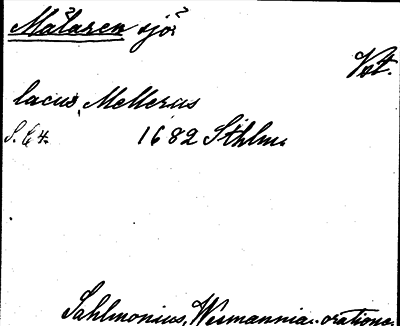 Mälaren sjö
Vst.
lacus Mellerus
S. 64. 1682 Sthlm
Sahlmonius, Wismannia oratione